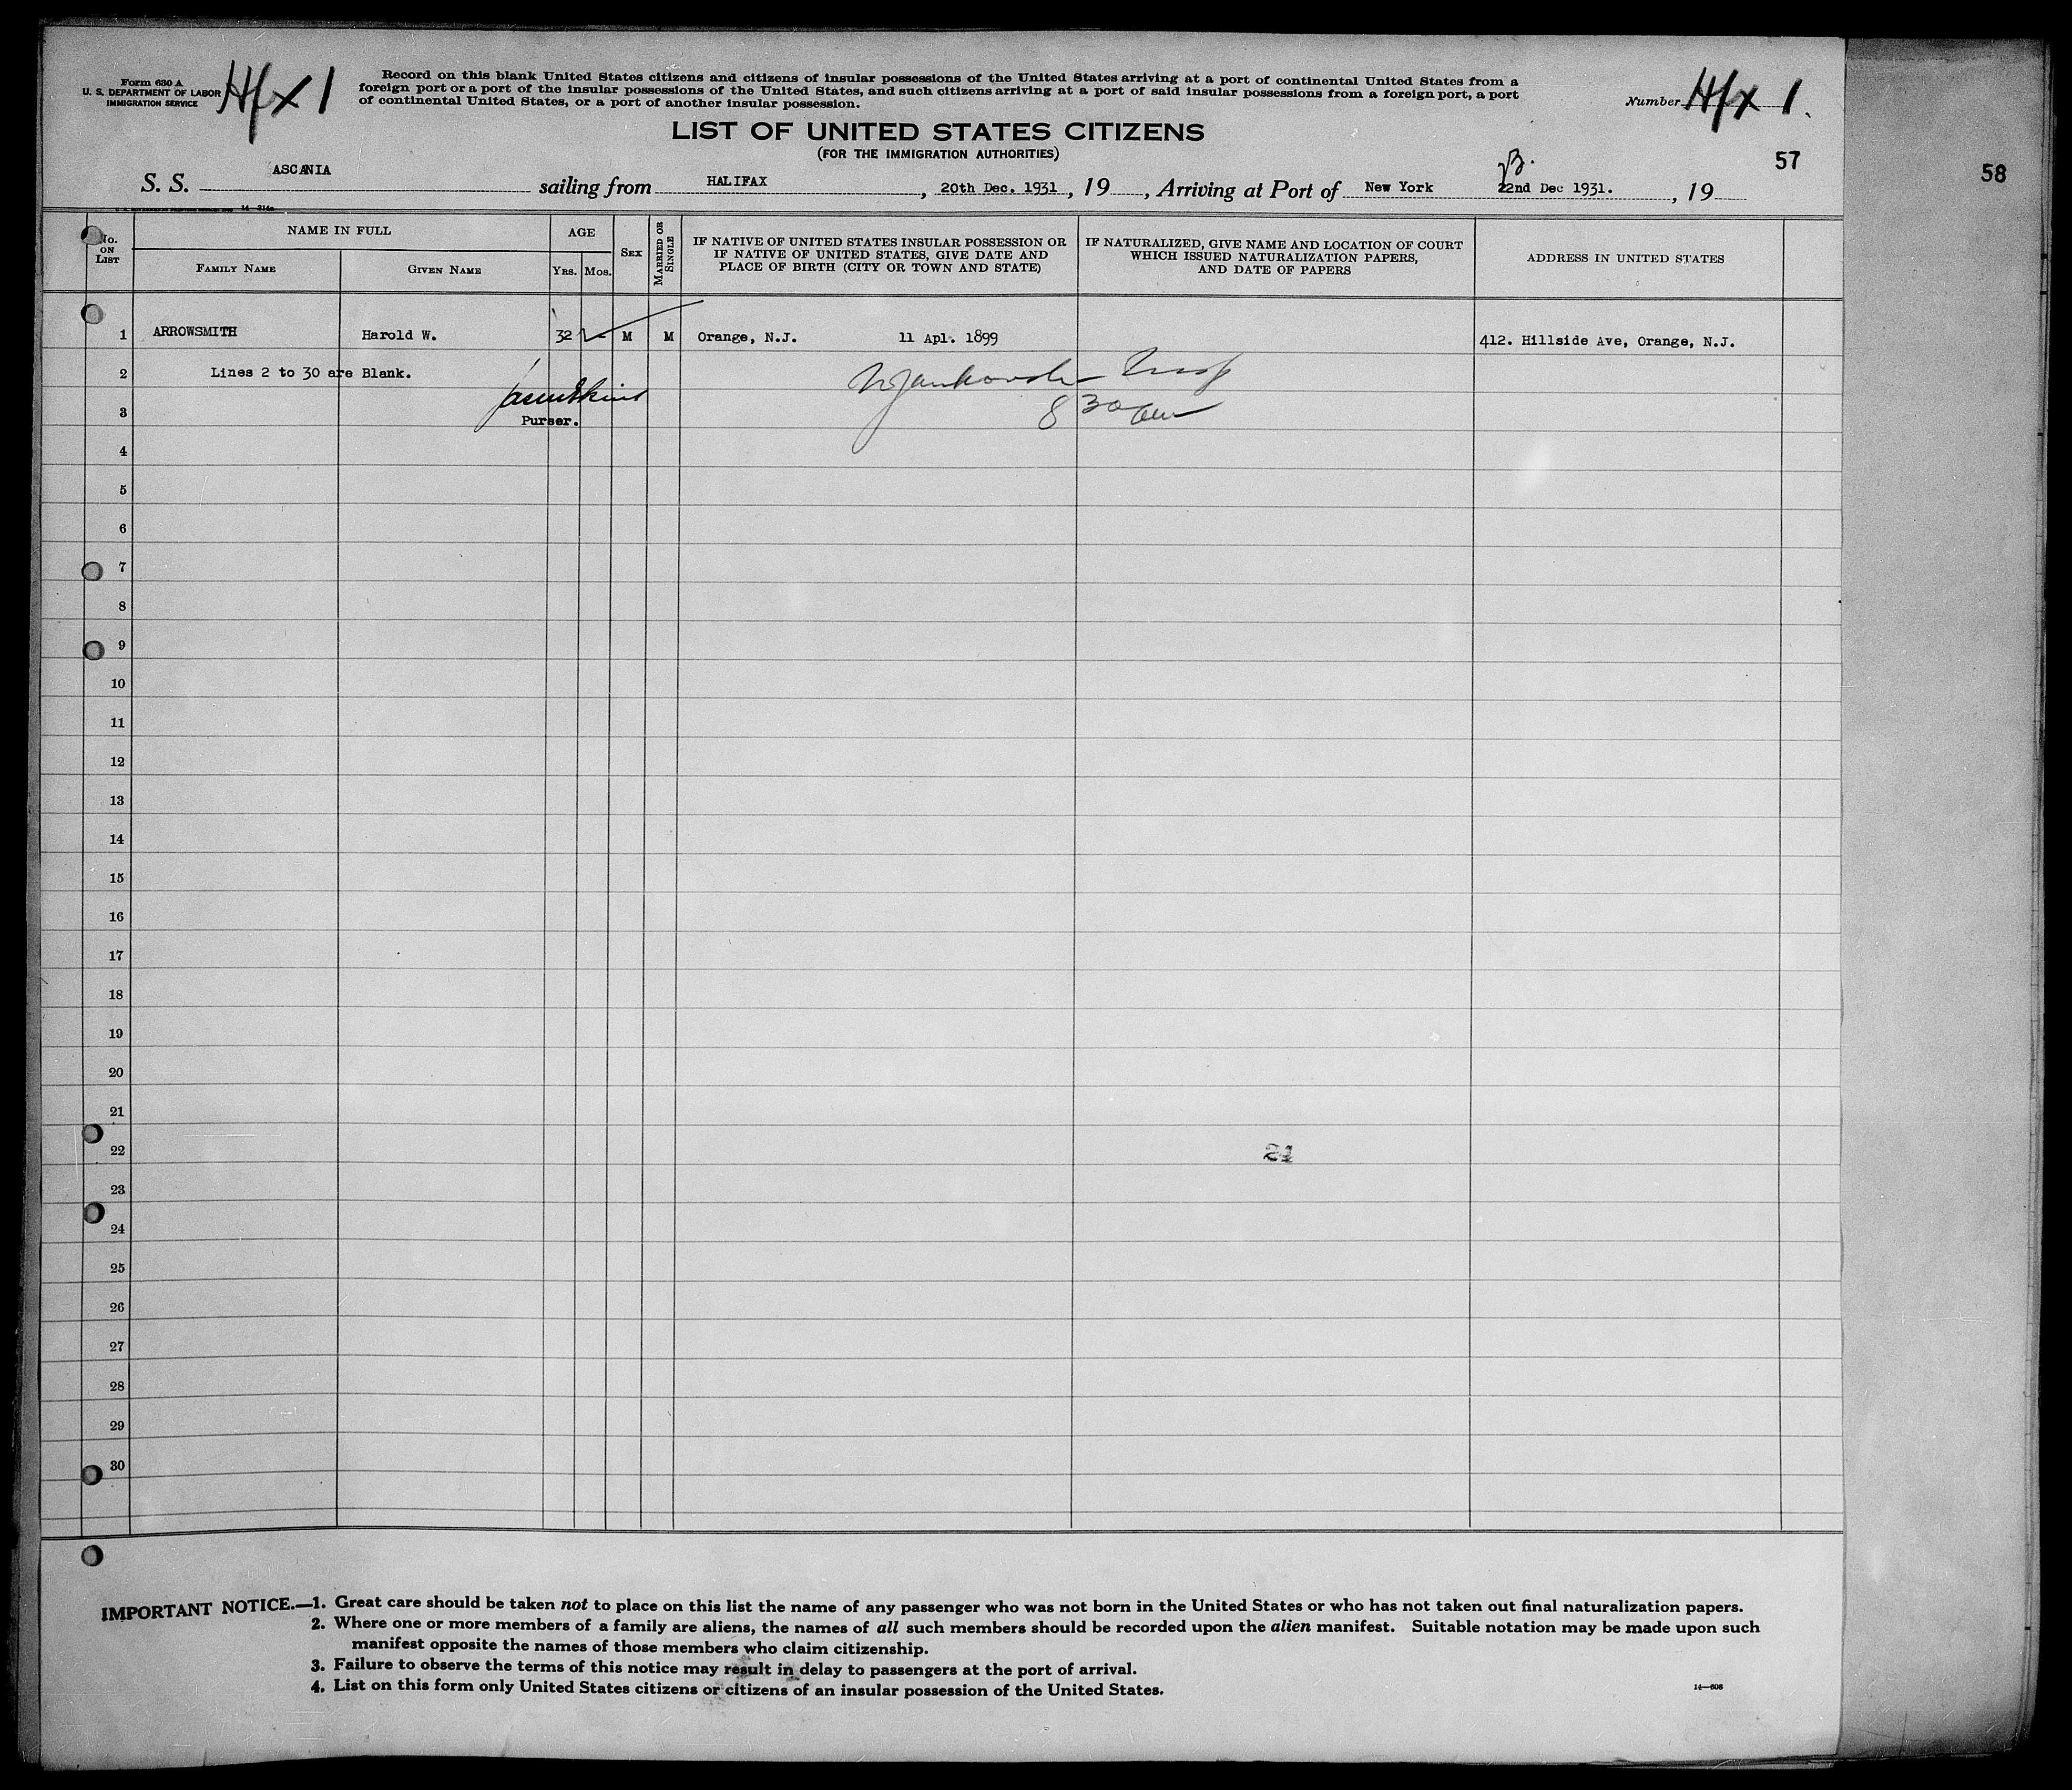 Form 630 A
U. S. DEPARTMENT OF LABOR
IMMIGRATION SERVICE
Hfx 1
Record on this blank United States citizens and citizens of insular possessions of the United States arriving at a port of continental United States from a
foreign port or a port of the insular possessions of the United States, and such citizens arriving at a port of said insular possessions from a foreign port, a port
of continental United States, or a port of another insular possession.
Number Hfx 1.
LIST OF UNITED STATES CITIZENS
(FOR THE IMMIGRATION AUTHORITIES)
57
58
S. S. ASCANIA sailing from HALIFAX, 20th Dec. 1931, 19, Arriving at Port of New York 22nd Dec 1931., 19
No. ON LIST
NAME IN FULL
FAMILY NAME
GIVEN NAME
AGE
YRS.
MOS.
SEX
MARRIED OR SINGLE
IF NATIVE OF UNITED STATES INSULAR POSSESSION OR
IF NATIVE OF UNITED STATES, GIVE DATE AND
PLACE OF BIRTH (CITY OR TOWN AND STATE)
IF NATURALIZED, GIVE NAME AND LOCATION OF COURT
WHICH ISSUED NATURALIZATION PAPERS,
AND DATE OF PAPERS
ADDRESS IN UNITED STATES
1 ARROWSMITH Harold W. 32 M M Orange, N.J. 11 Apl. 1899 412. Hillside Ave, Orange, N.J.
2 Lines 2 to 30 are Blank.
3 Purser. 8 30 am
4
5
6
7
8
9
10
11
12
13
14
15
16
17
18
19
20
21
22
23
24
25
26
27
28
29
30
IMPORTANT NOTICE.—1. Great care should be taken not to place on this list the name of any passenger who was not born in the United States or who has not taken out final naturalization papers.
2. Where one or more members of a family are aliens, the names of all such members should be recorded upon the alien manifest. Suitable notation may be made upon such
manifest opposite the names of those members who claim citizenship.
3. Failure to observe the terms of this notice may result in delay to passengers at the port of arrival.
4. List on this form only United States citizens or citizens of an insular possession of the United States.
14—608